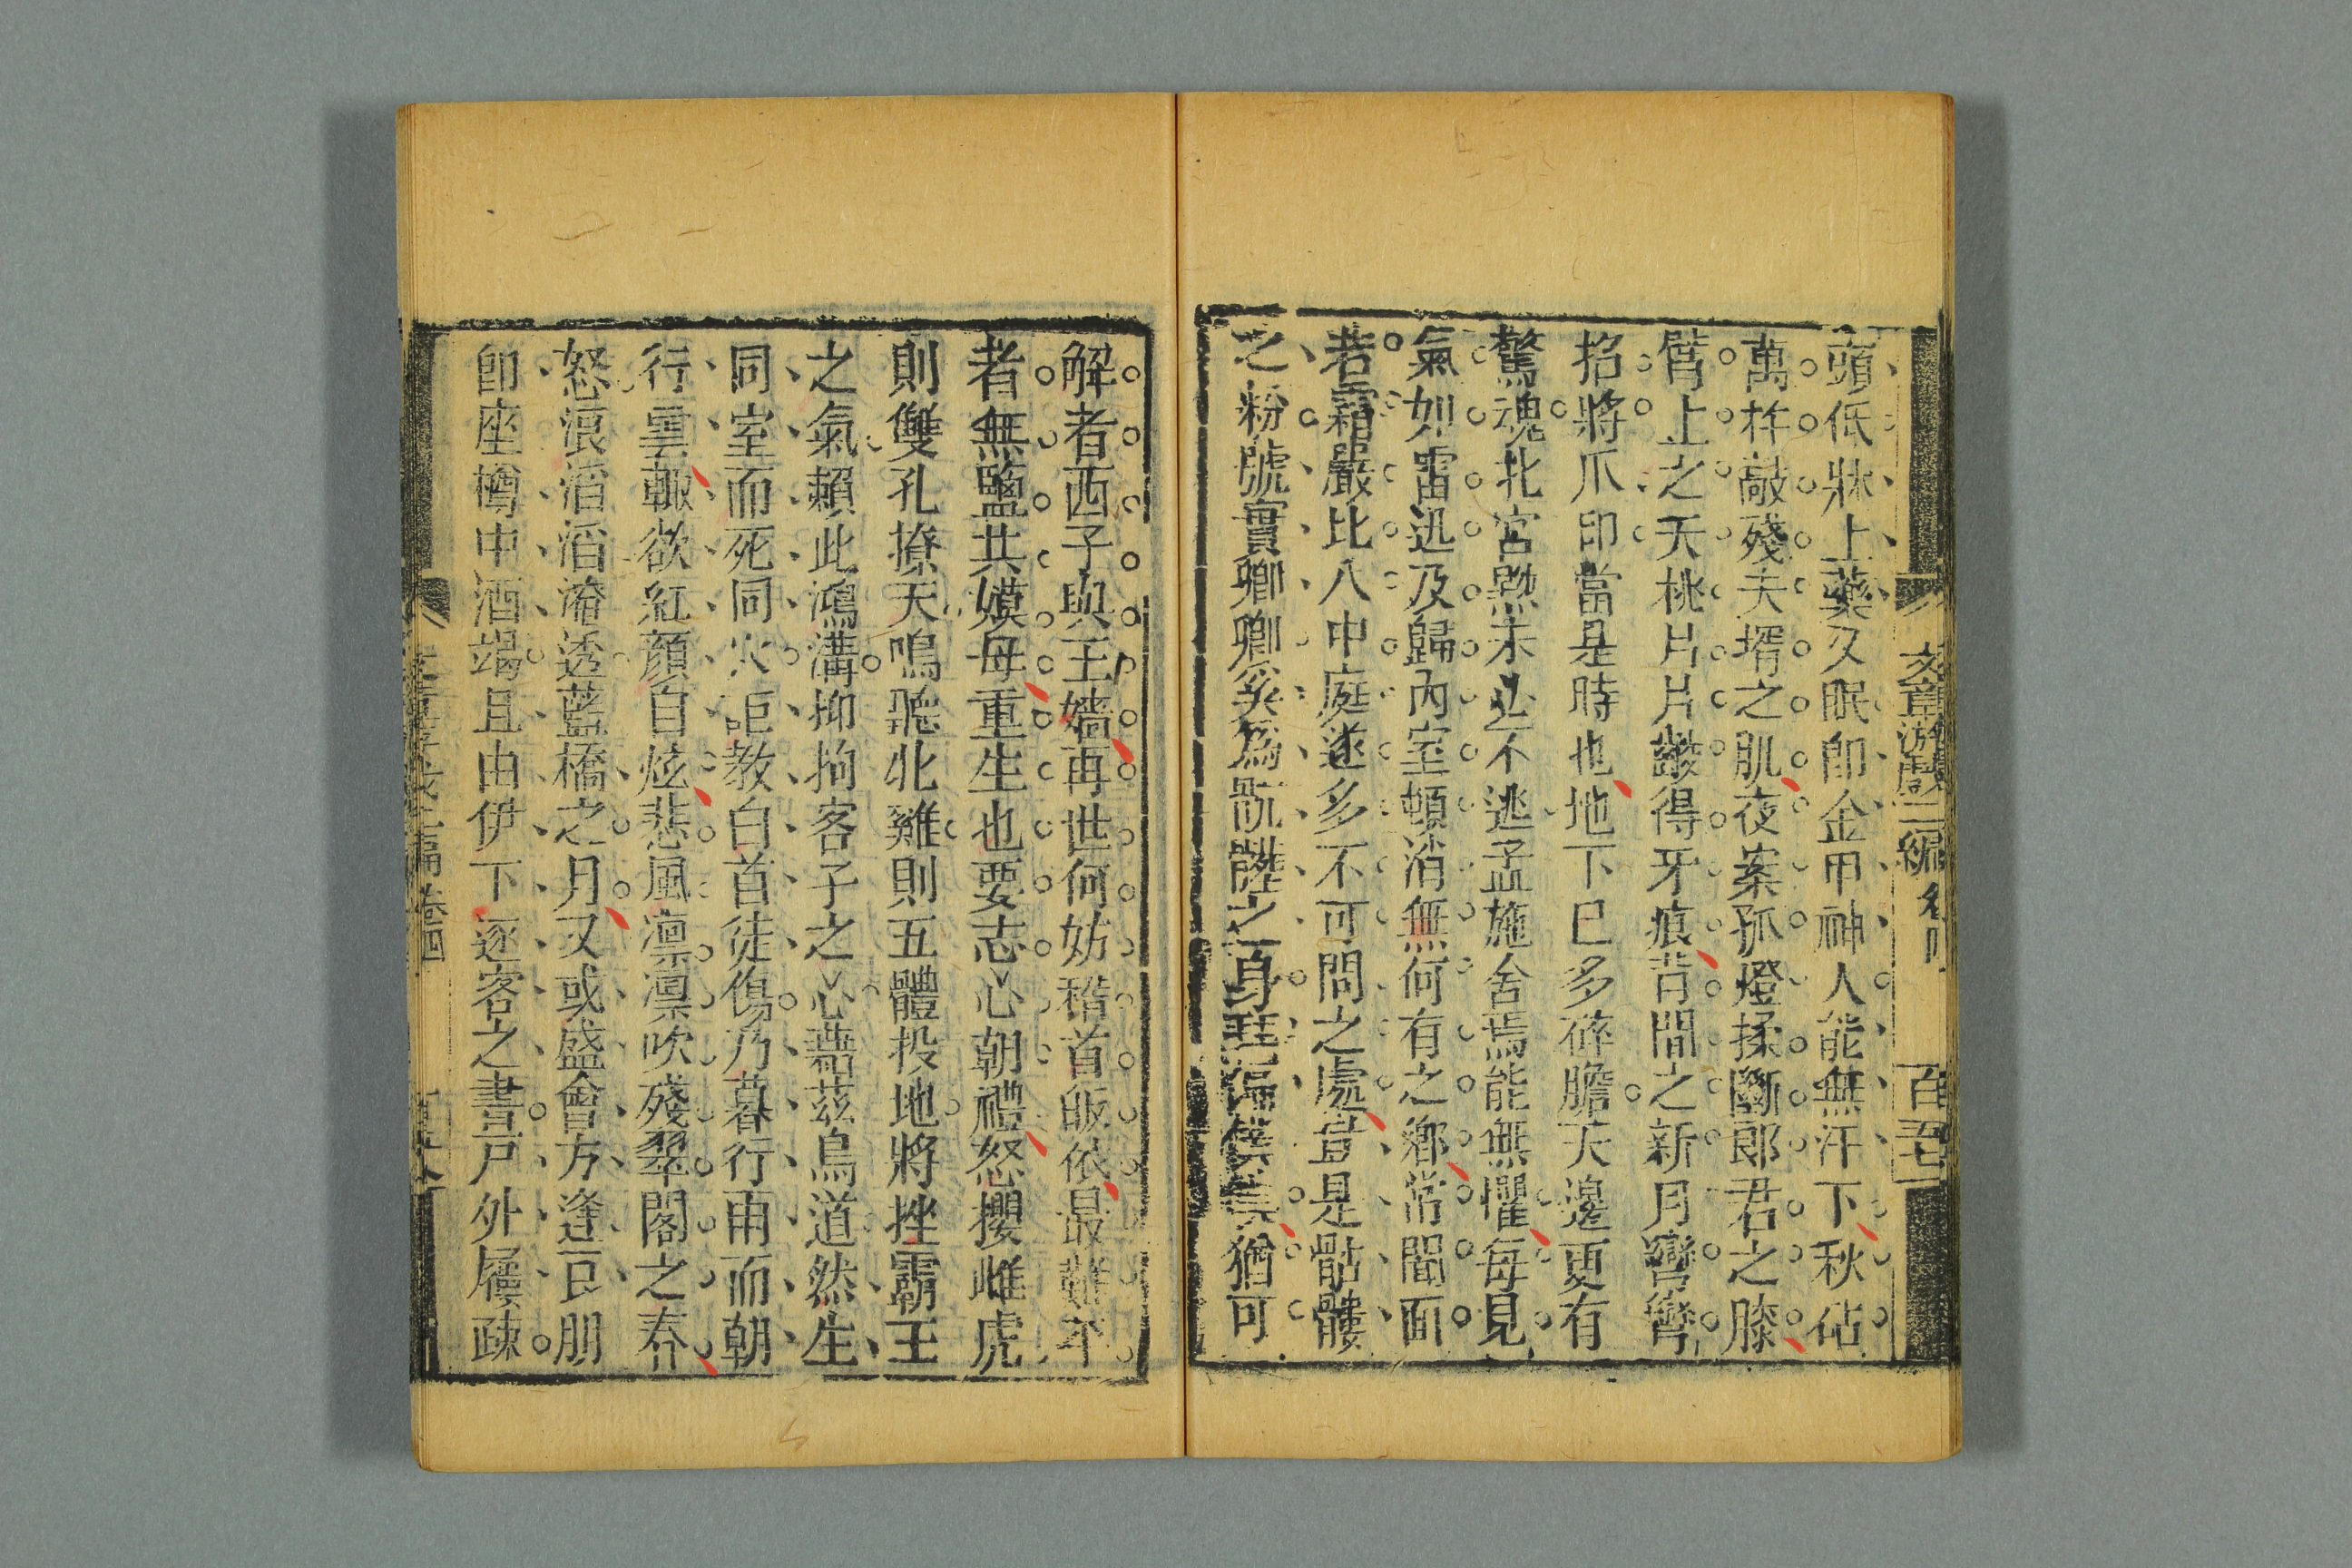 文章游戲二編 卷四 百五七
頭低牀上藥叉眠卽金甲神人能無汗下秋砧
萬杵敲殘夫壻之肌夜案孤燈揉斷郎君之膝
臂上之夭桃片片齩得牙痕背間之新月彎彎
掐將爪印當是時也地下已多碎膽天邊更有
驚魂北宮黝未必不逃孟施舍焉能無懼每見
氣如雷迅及歸內室頓消無何有之鄉常閻面
若霜嚴比入中庭遂多不可問之處豈是骷髏
之粉號實卿卿奚爲骯髒之身琵琶偏僕僕猶可
解者西子與王嬙再世何妨稽首皈依最難平
者無鹽共嫫母重生也要志心朝禮怒攖雌虎
則雙孔撩天鳴聽牝雞則五體投地將挫霸王
之氣賴此鴻溝抑拘客子之心藉茲鳥道然生
同室而死同穴詎教白首徒傷乃暮行雨而朝
行雲輙欲紅顏自炫悲風凛凛吹殘翠閣之春
怒浪滔滔淹透藍橋之月又或盛會方逢良朋
卽座樽中酒竭且由伊下逐客之書戸外屨疎
卷四